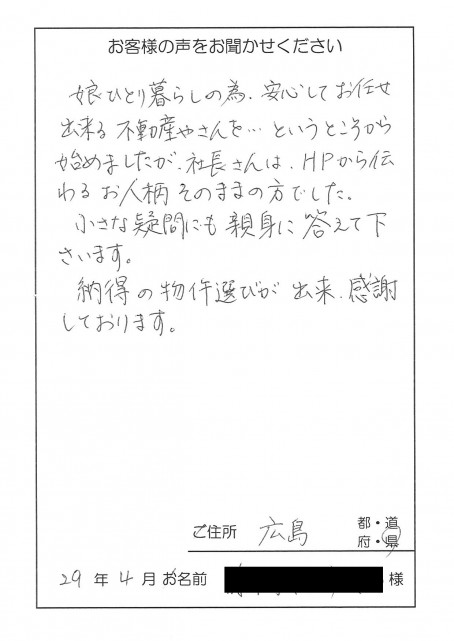 お客様の声をお聞かせください
娘ひとり暮らしの為、安心してお任せ
出来る不動産やさんを…というところから
始めましたが、社長さんは、HPから伝
わるお人柄そのままの方でした。
小さな疑問にも親身に答えて下
さいます。
納得の物件選びが出来、感謝
しております。
ご住所 広島 都・道
府・県
29年4月 お名前 様